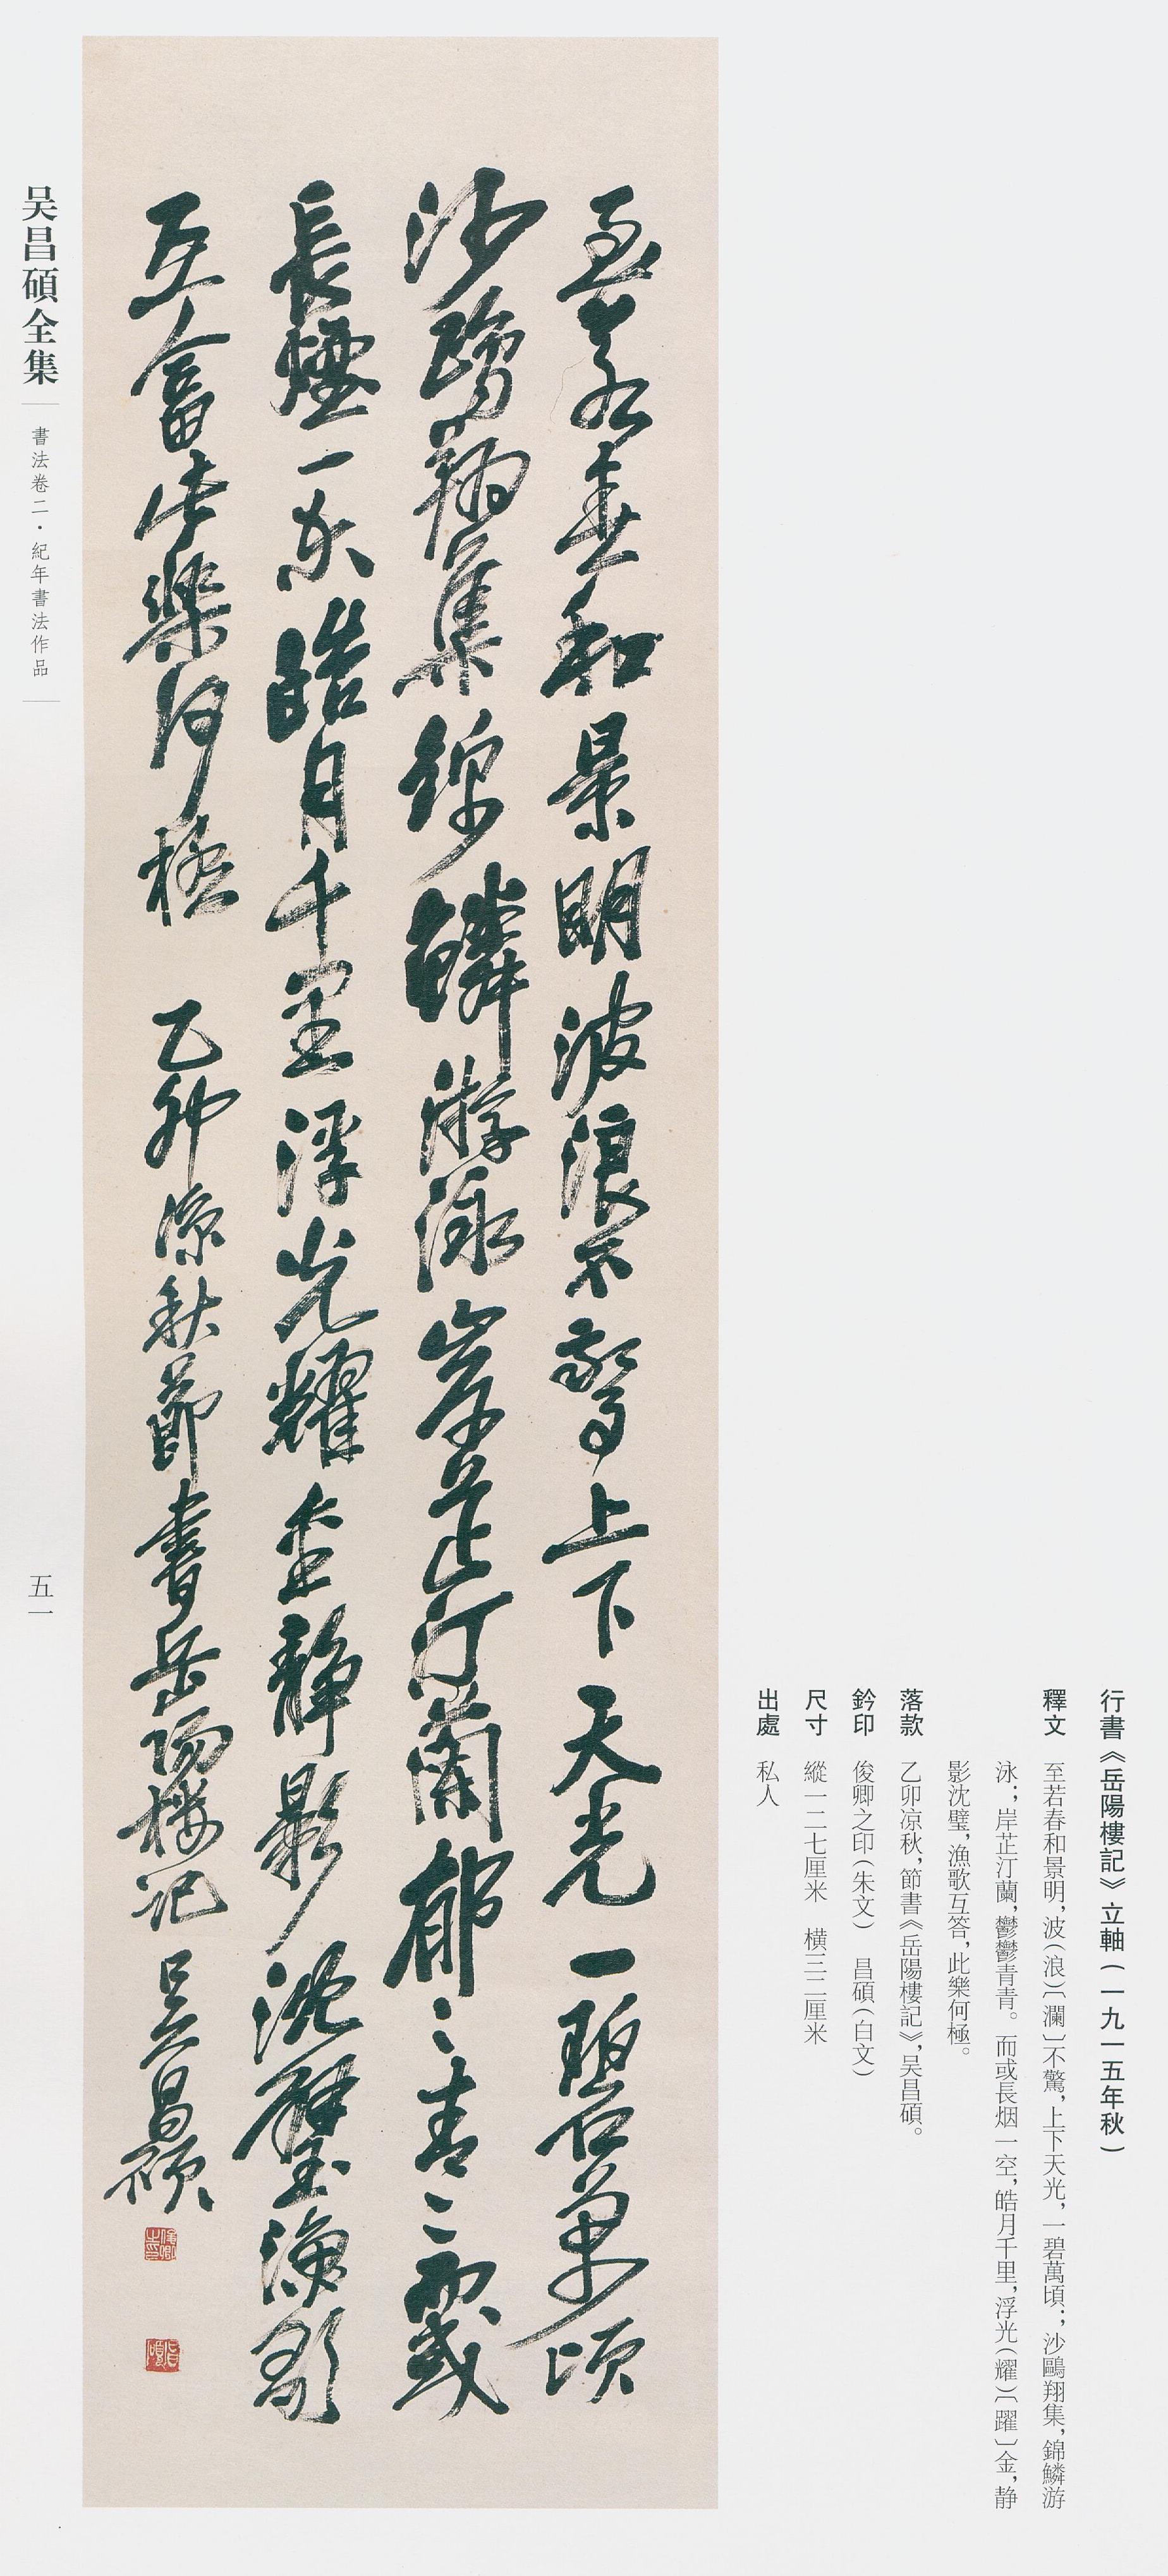 行書《岳陽樓記》立軸(一九一五年秋)
釋文 至若春和景明,波(浪)〔瀾〕不驚,上下天光,一碧萬頃;沙鷗翔集,錦鱗游
泳;岸芷汀蘭,鬱鬱青青。而或長烟一空,皓月千里,浮光(耀)〔躍〕金,静
影沈璧,漁歌互答,此樂何極。
落款 乙卯凉秋,節書《岳陽樓記》,吴昌碩。
鈐印 俊卿之印(朱文) 昌碩(白文)
尺寸 縱一二七厘米 横三二厘米
出處 私人
至若春和景明波浪不驚上下天光一碧萬頃
沙鷗翔集錦鱗游泳岸芷汀蘭郁〻青〻而或
長煙一空皓月千里浮光耀金靜影沈璧漁歌
互畣此樂何極 乙卯涼秋節書岳陽樓記 吳昌碩
俊卿之印
昌碩
吴昌碩全集
書法卷二·紀年書法作品
五一